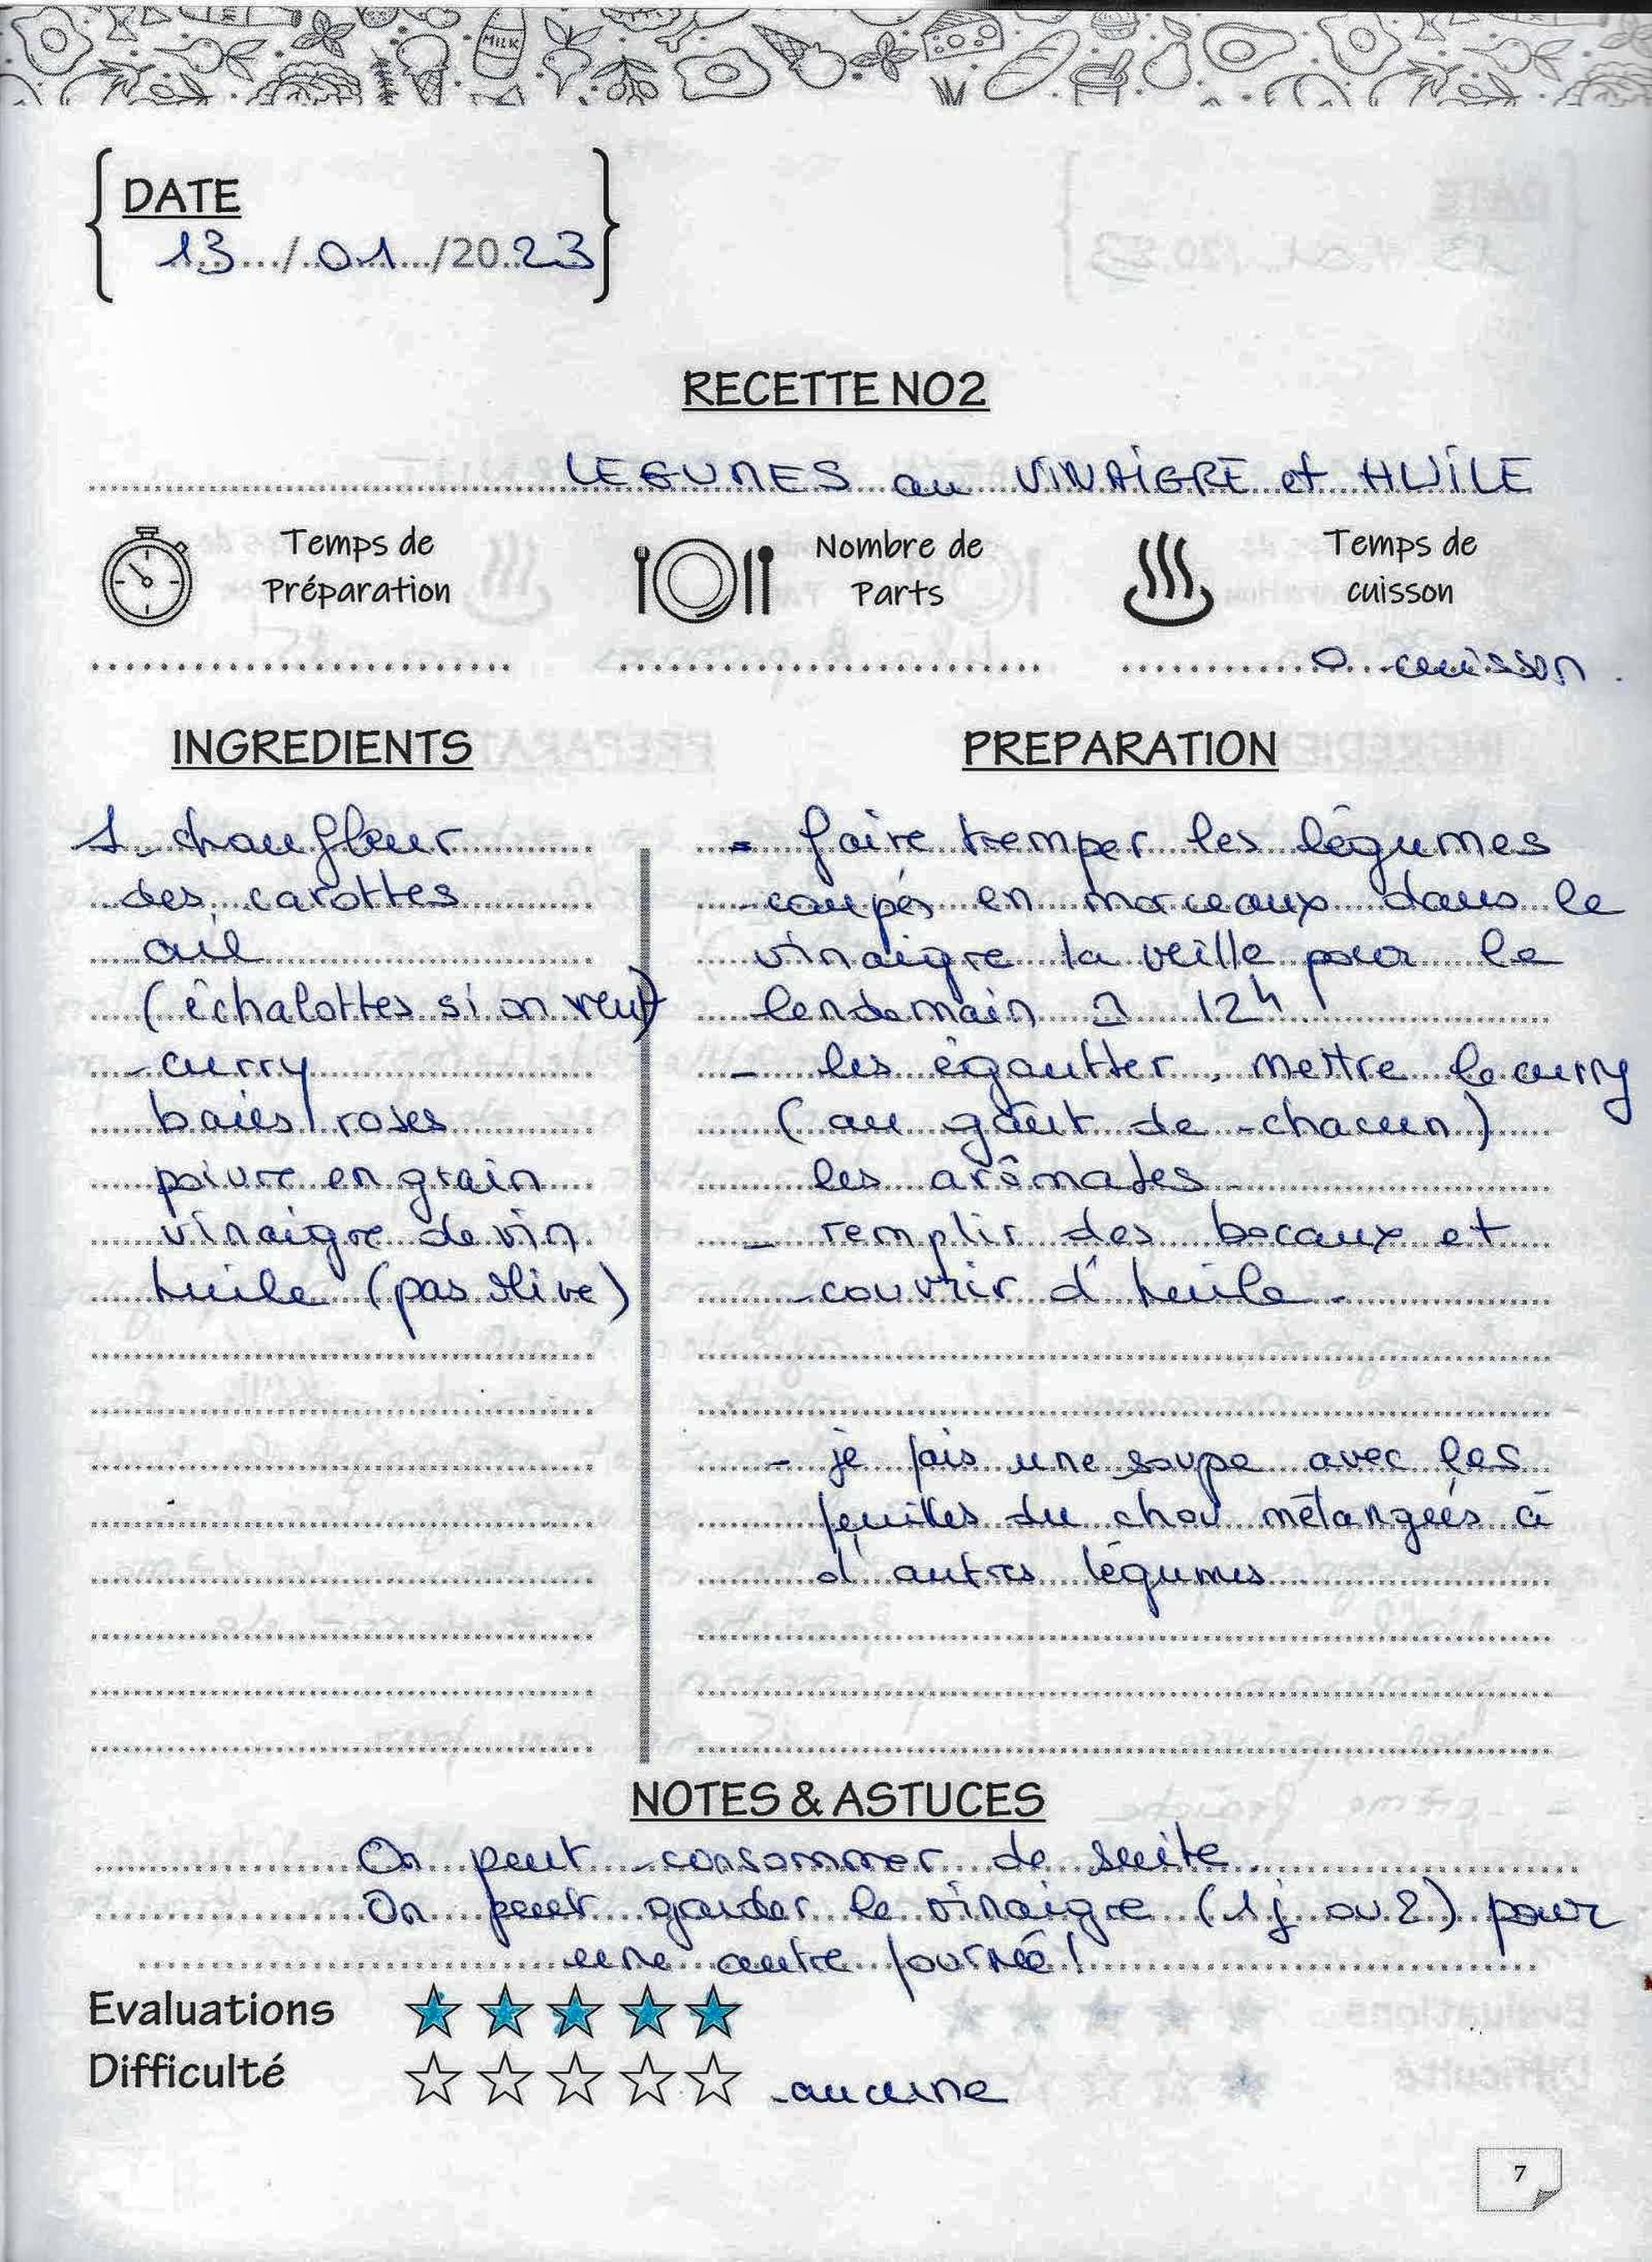 MILK
DATE
13/01/2023
RECETTE NO2
LEGUMES au VINAIGRE et HUILE
Temps de Préparation
Nombre de Parts
Temps de cuisson
0 cuisson.
INGREDIENTS
1 chou fleur
des carottes
ail
(échalottes si on veut)
curry
baies roses
poivre en grain
vinaigre de vin
huile (pas olive)
PREPARATION
- faire tremper les légumes
coupés en morceaux dans le
vinaigre la veille pour le
lendemain à 12h
- les égoutter, mettre le curry
(au goût de chacun)
les arômates.
- remplir des bocaux et
couvrir d'huile.
- je fais une soupe avec les
feuilles du chou mélangées à
d'autres légumes
NOTES & ASTUCES
On peut consommer de suite.
On peut garder le vinaigre (1j ou 2) pour
une autre fournée!
Evaluations
Difficulté aucune
7